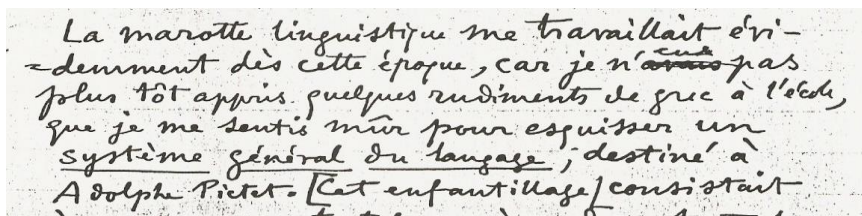 La marotte linguistique me travaillait évi-
=demment dès cette époque, car je n'avais eus pas
plus tôt appris quelques rudiments de grec à l'école,
que je me sentis mûr pour esquisser un
système général du langage, destiné à
Adolphe Pictet. [Cet enfantillage] consistait